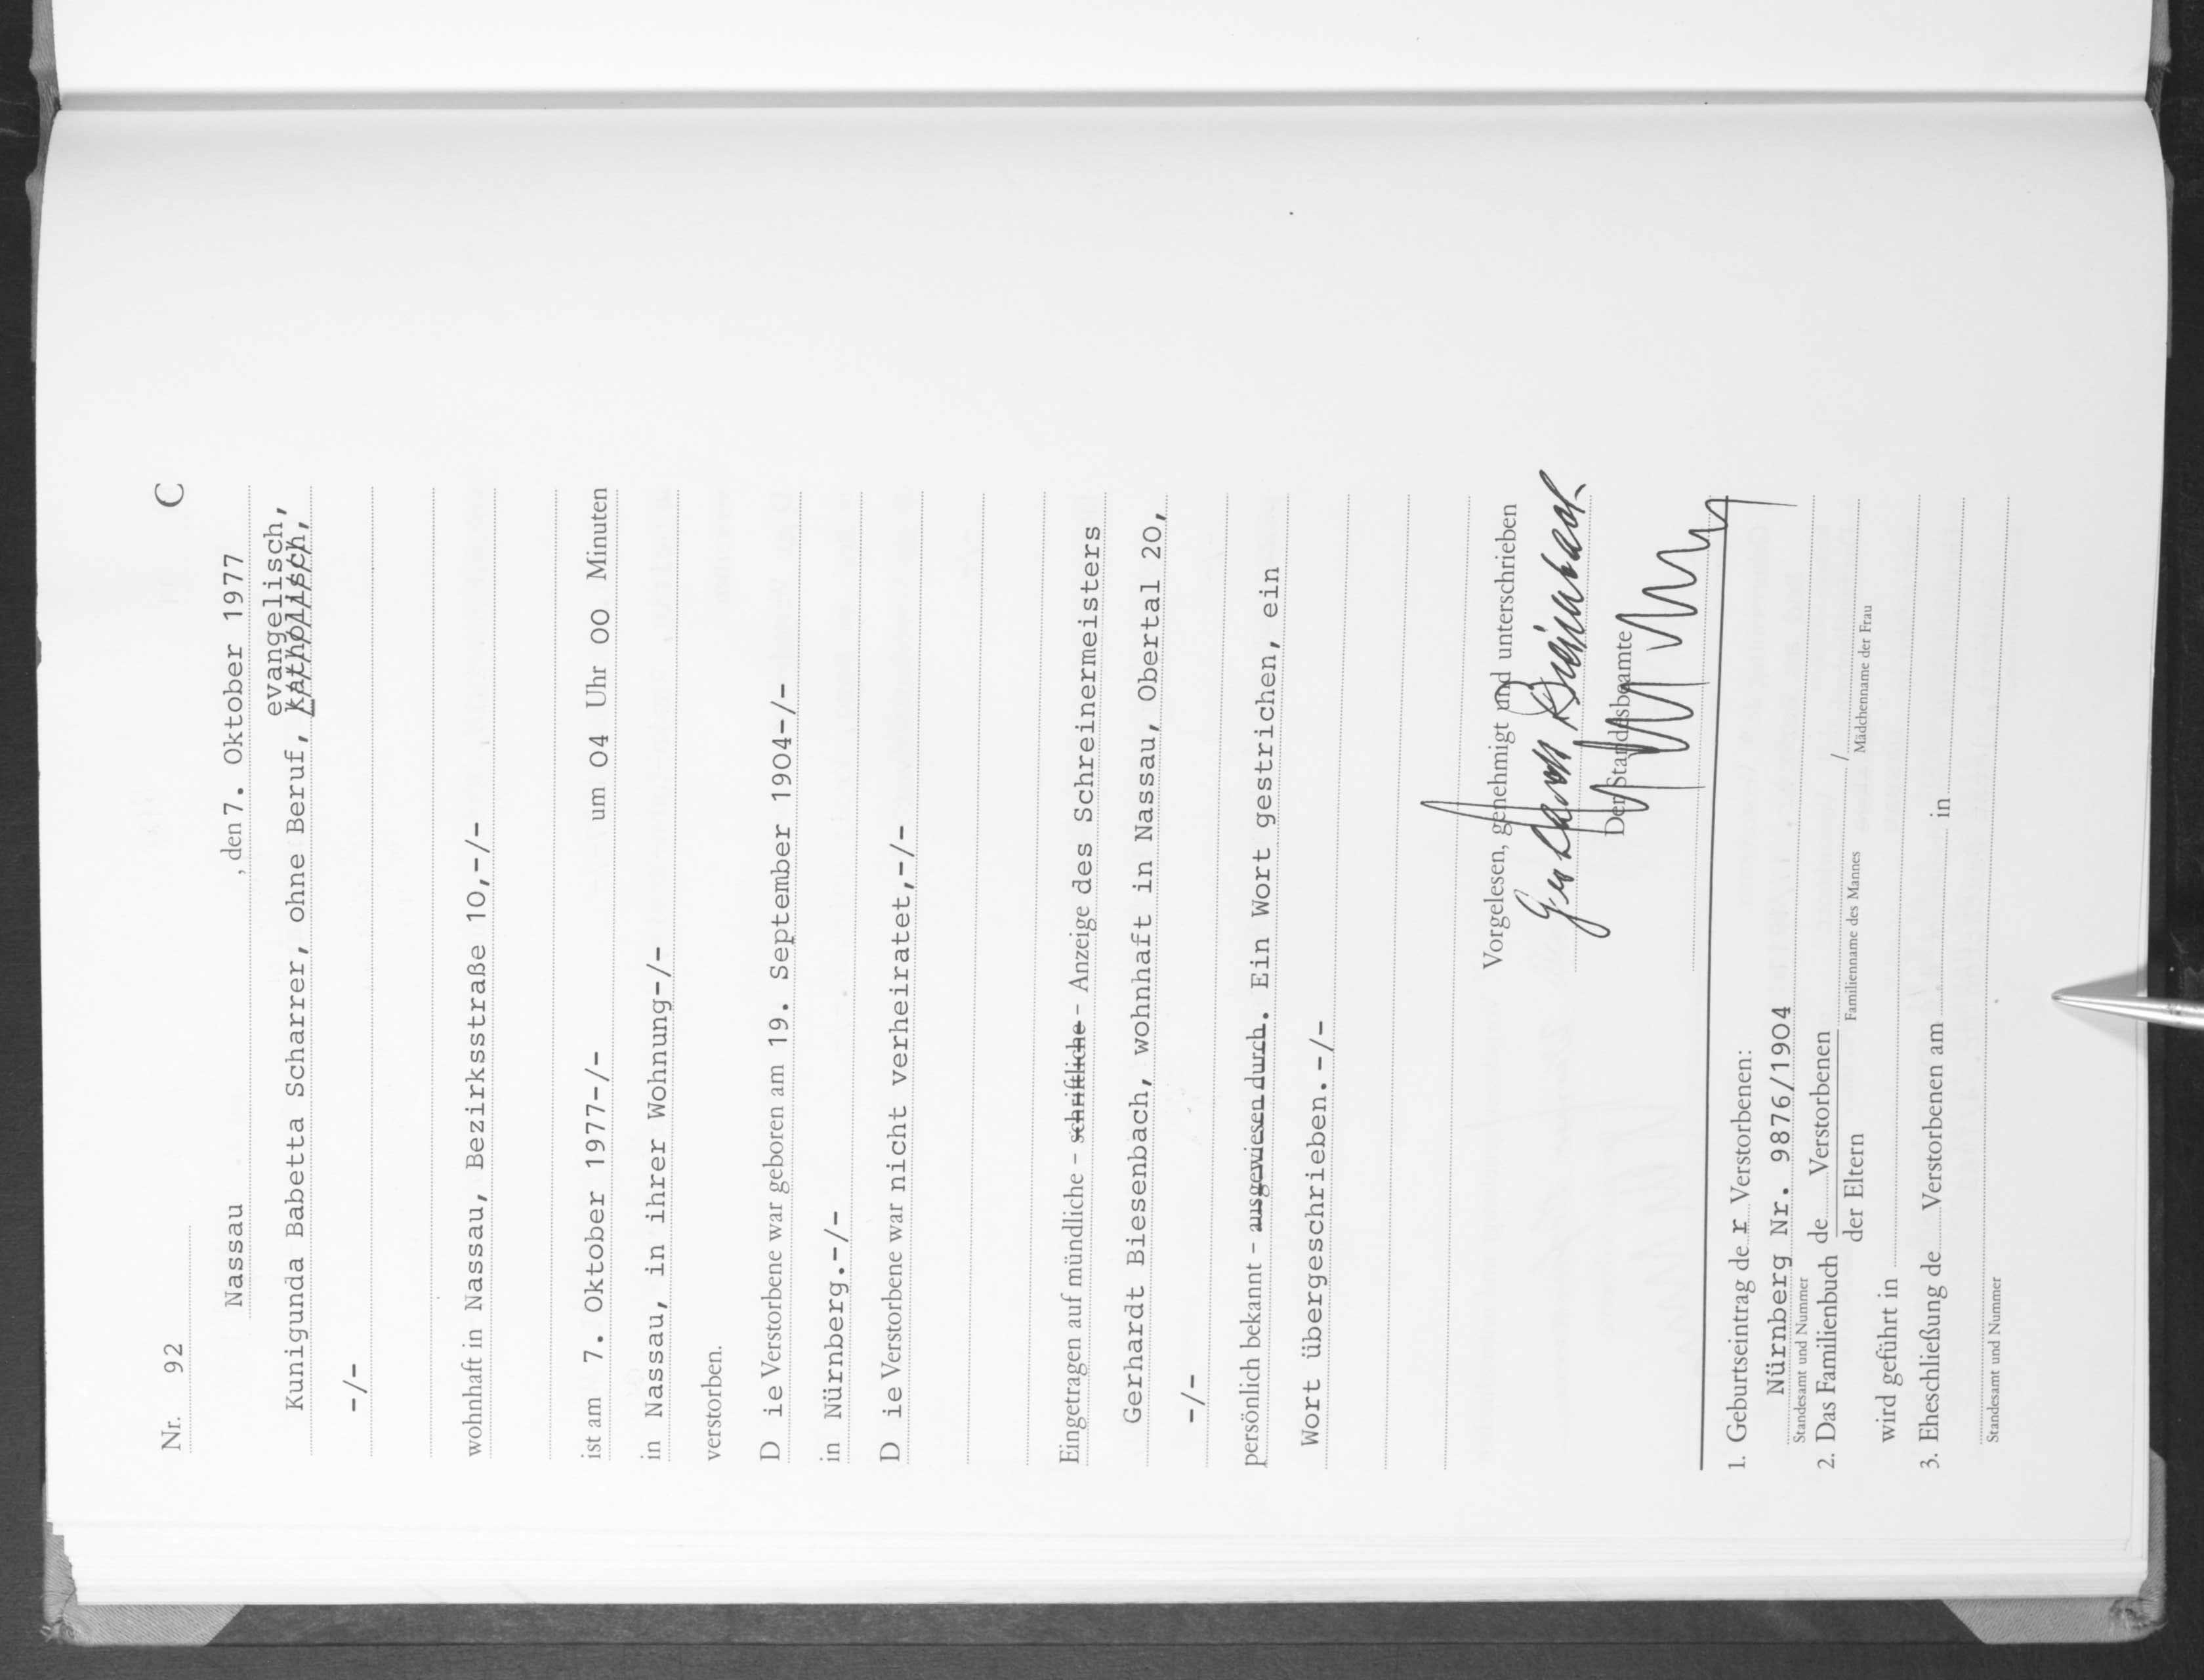 Nr. 92 C
Nassau, den 7. Oktober 1977
evangelisch,
Kunigunda Babetta Scharrer, ohne Beruf, katholisch,
-/-
wohnhaft in Nassau, Bezirksstraße 10,-/-
ist am 7. Oktober 1977-/- um 04 Uhr 00 Minuten
in Nassau, in ihrer Wohnung-/-
verstorben.
D ie Verstorbene war geboren am 19. September 1904-/-
in Nürnberg.-/-
D ie Verstorbene war nicht verheiratet,-/-
Eingetragen auf mündliche - schriftliche - Anzeige des Schreinermeisters
Gerhardt Biesenbach, wohnhaft in Nassau, Obertal 20,
-/-
persönlich bekannt - ausgewiesen durch. Ein Wort gestrichen, ein
Wort übergeschrieben.-/-
Vorgelesen, genehmigt und unterschrieben
Gerhardt Biesenbach
Der Standesbeamte
1. Geburtseintrag de r Verstorbenen:
Nürnberg Nr. 9876/1904
Standesamt und Nummer
2. Das Familienbuch de Verstorbenen /
der Eltern Familienname des Mannes Mädchenname der Frau
wird geführt in
3. Eheschließung de Verstorbenen am in
Standesamt und Nummer